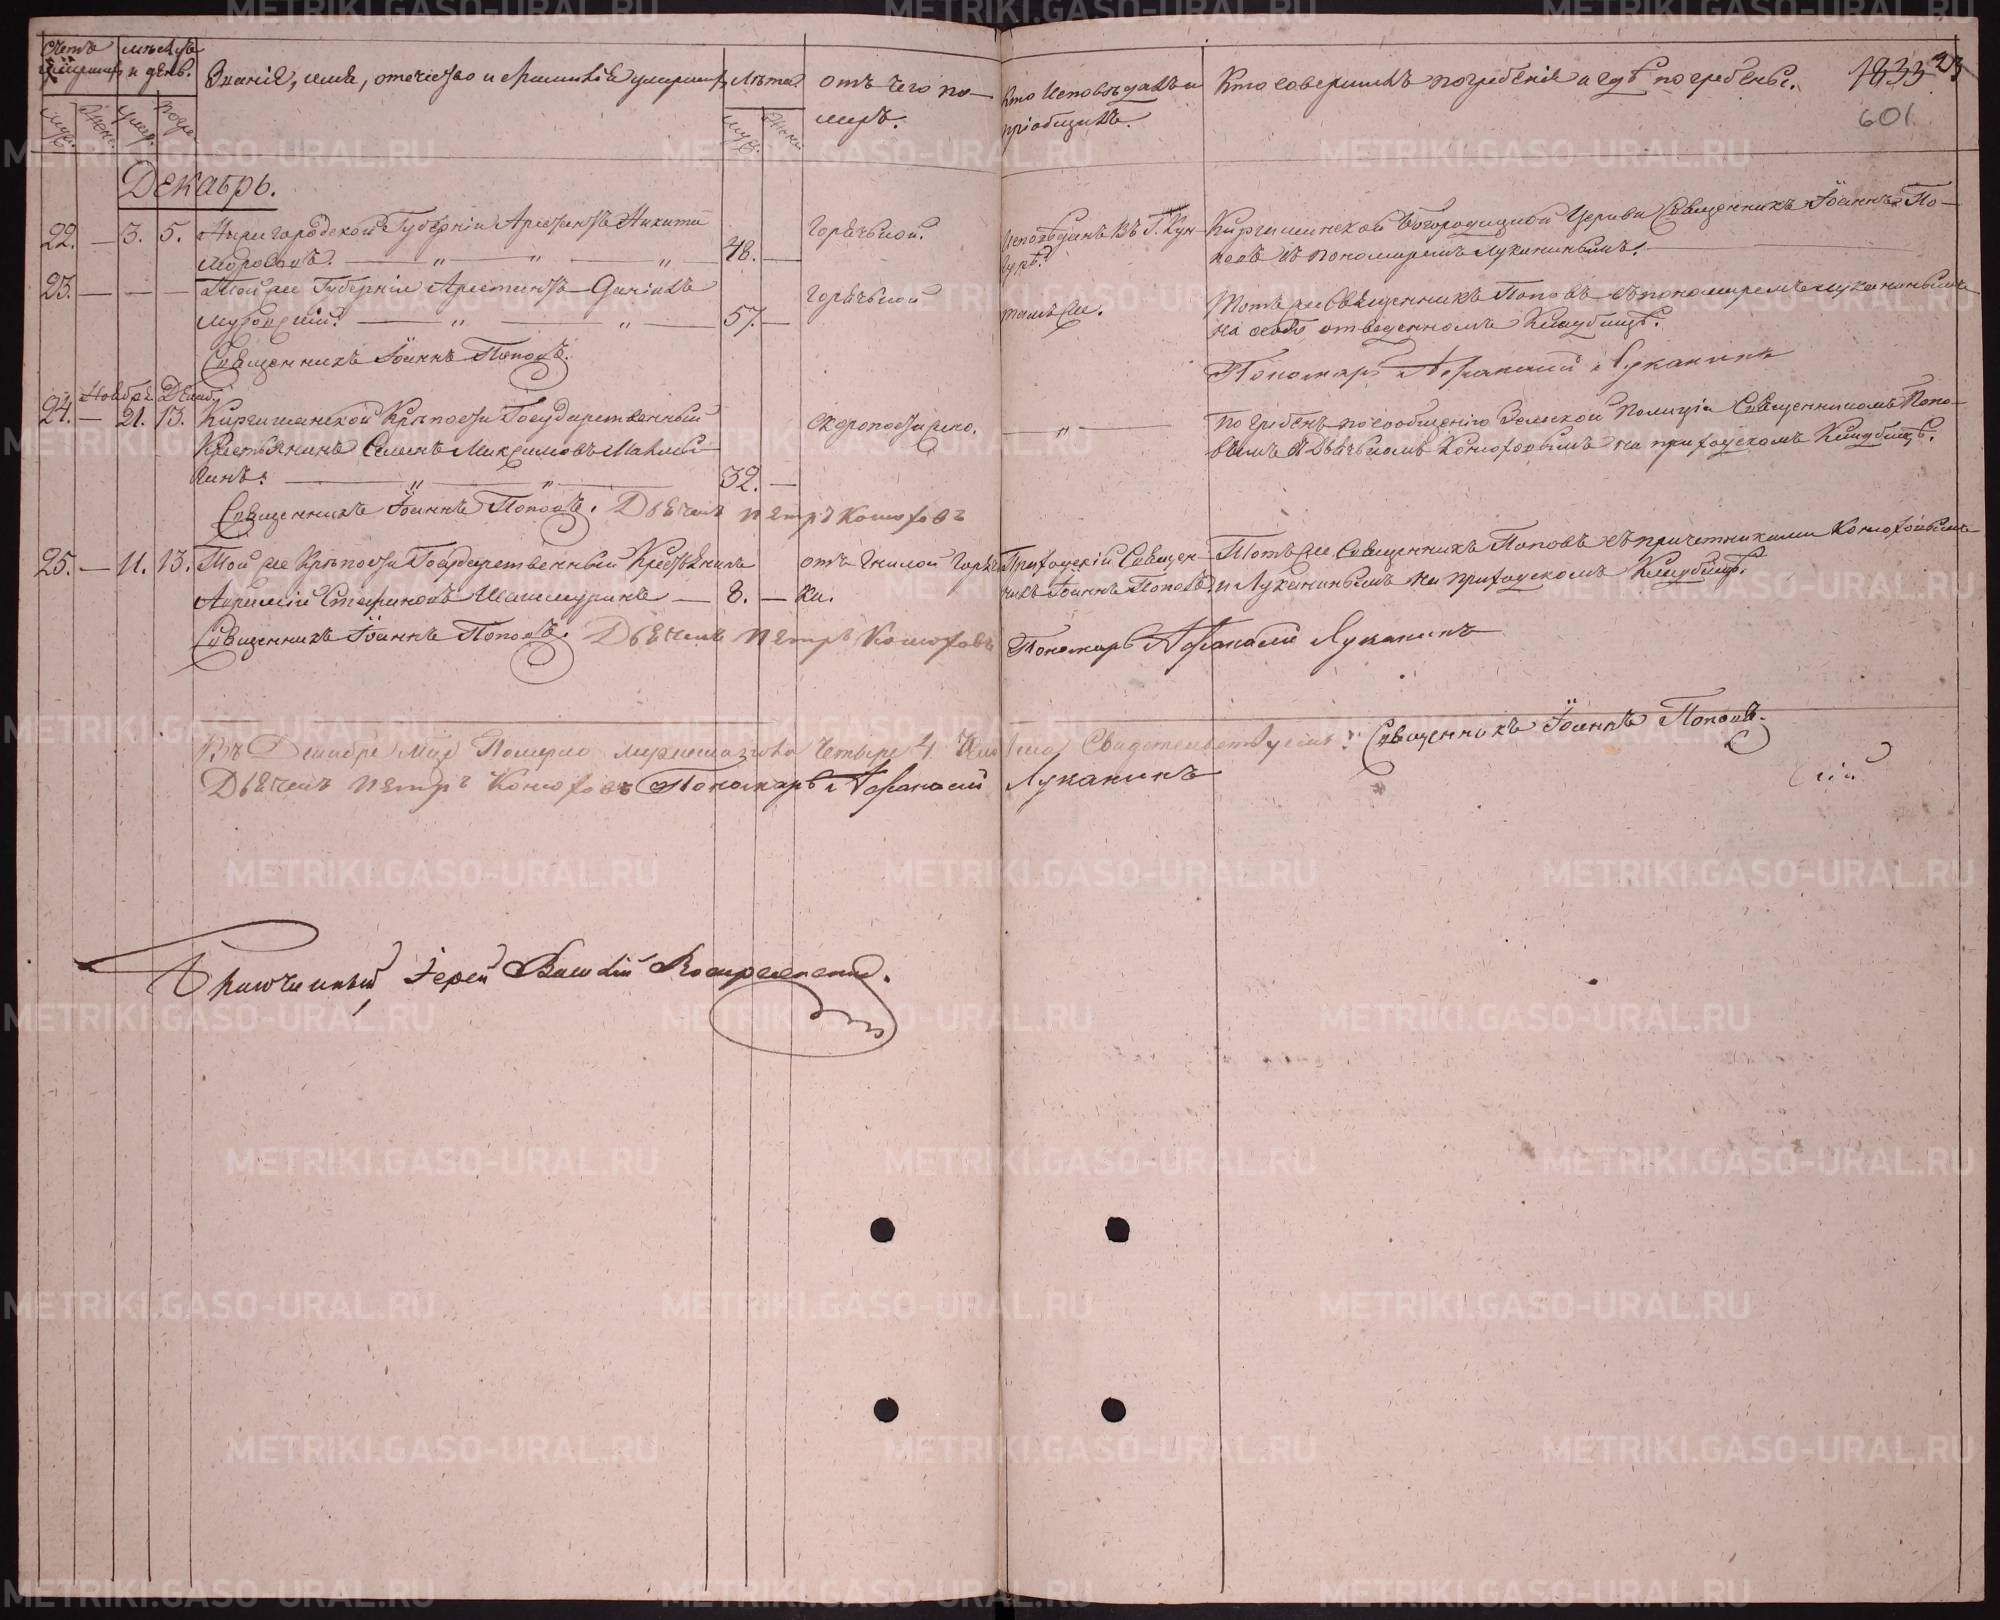 Счетъ умершихъ
мѣсяцъ и день.
Званіе, имя, отечество и фамилія умершихъ
Лѣта
отъ чего по-
меръ.
Кто исповѣдалъ и
пріобщилъ.
Кто совершилъ погребеніе и гдѣ погребены.
1833
23
601
муж.
женс.
умер.
погре.
муж.
женс.
Декабрь.
22. — 3. 5. Нижегородской Губерніи Арестантъ Никита
Морозовъ. — 48. —
Горячьной.
Исповѣданъ въ Г. Кун-
гурѣ.
Киргишанской Богородицкой Церкви Священникъ Іоаннъ По-
повъ съ пономаремъ Луканинымъ.
23. — — — Той же Губерніи Арестантъ Данилъ
57. —
Горячьной
тамъ же.
Тотъ же Священникъ Поповъ съ пономаремъ Луканинымъ
на особо отведенномъ Кладбищѣ.
Священникъ Іоаннъ Поповъ.
Пономарь Афанасий Луканинъ
Ноябрь Декаб
24. — 21. 13. Киргишанской Крѣпости Государственный
Крестьянинъ Семенъ Максимовъ
гинъ. — 32. —
скоропостижно.
Погребенъ по сообщенію Земской Полиціи Священникомъ Попо-
вымъ и Дьячькомъ Конюховымъ на приходскомъ Кладбищѣ.
Священникъ Іоаннъ Поповъ. Дьячекъ Петръ Конюховъ
25. — 11. 13. Той же Крѣпости Государственный Крестьянинъ
Стефановъ — 8. —
отъ гнилой горяч
ки.
Приходскій Священ-
никъ Іоаннъ Поповъ
Тотъ же Священникъ Поповъ съ причетниками Конюховымъ
и Луканинымъ на приходскомъ Кладбищѣ.
Священникъ Іоаннъ Поповъ. Дьячекъ Петръ Конюховъ Пономарь Афанасий Луканинъ
Въ Декабре Померло мужеска пола четыре 4 Свидетельствуемъ: Священникъ Іоаннъ Поповъ.
Дьячекъ Петръ Конюховъ Пономарь Афанасий Луканинъ
Благочинный, Іерей Василій Воскресенский.
METRIKI.GASO-URAL.RU